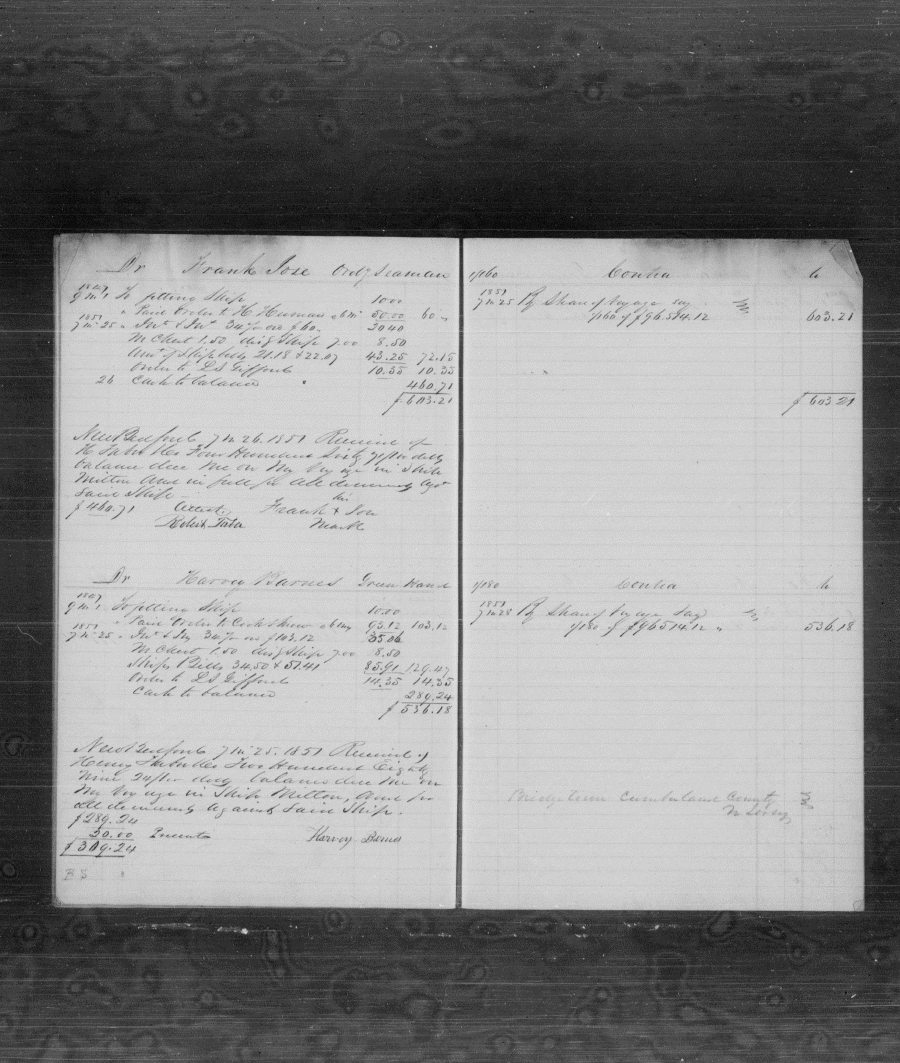 Dr Frank Jose Ordy Seaman
1847
9 m 1 To fitting Ship 10.00
" Paid Order to H. 50.00 60 "
1851
7 m 25 " Int & Ins 34% on $60. 20.40
M Chest 1.50 disg Ship 7.00 8.50
Am't of Ship bills 21.18 & 22.07 43.25 72.15
Order to L S Gifford 10.35 10.35
26 Cash to balance 460.71
$603.21
New Bedford 7 m 26. 1851 Received of
H Taber & Co Four Hundred Sixty 71/100 dolls
balance due me on my Voyage in Ship
Milton and in full for all demands agst
Said Ship
$460.71 Attest Frank his
Robert Taber X Jose
Mark
Dr Harvey Barnes Green Hand
1847
9 m 1 To fitting Ship 10.00
" Paid Order to 93.12 103.12
1851
7 m 25 " Int & Ins 34% on $103.12 35.06
M Chest 1.50 disg Ship 7.00 8.50
Ships Bills 34.50 & 51.41 85.91 129.47
Order to L S Gifford 14.35 14.35
Cash to balance 289.24
$536.18
New Bedford 7 m 25. 1851 Received of
Henry Taber & Co Two Hundred Eighty
Nine 24/100 dolls balance due me on
My Voyage in Ship Milton, and for
all demands against Said Ship.
$289.24
20.00 Present
$309.24 Harvey Barns
B S
1/160 Contra Cr
1851
7 m 25 By Share of Voyage say
1/160 of $96514.12 603.21
$603.21
1/180 Contra Cr
1851
7 m 25 By Share of Voyage Say
1/180 of $96514.12 " 536.18
Bridgeton Cumberland County
N Jersey